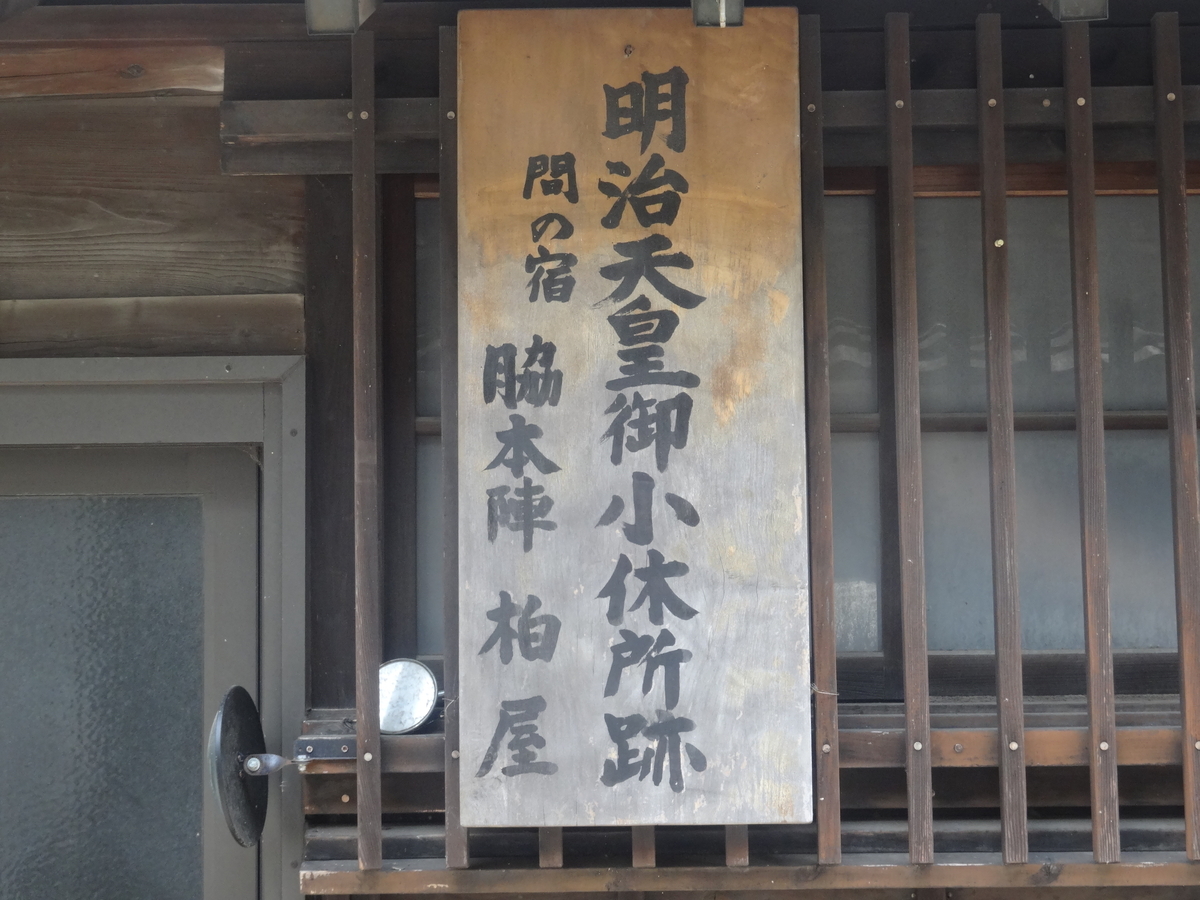 明治天皇御小休所跡
間の宿 脇本陣 柏屋